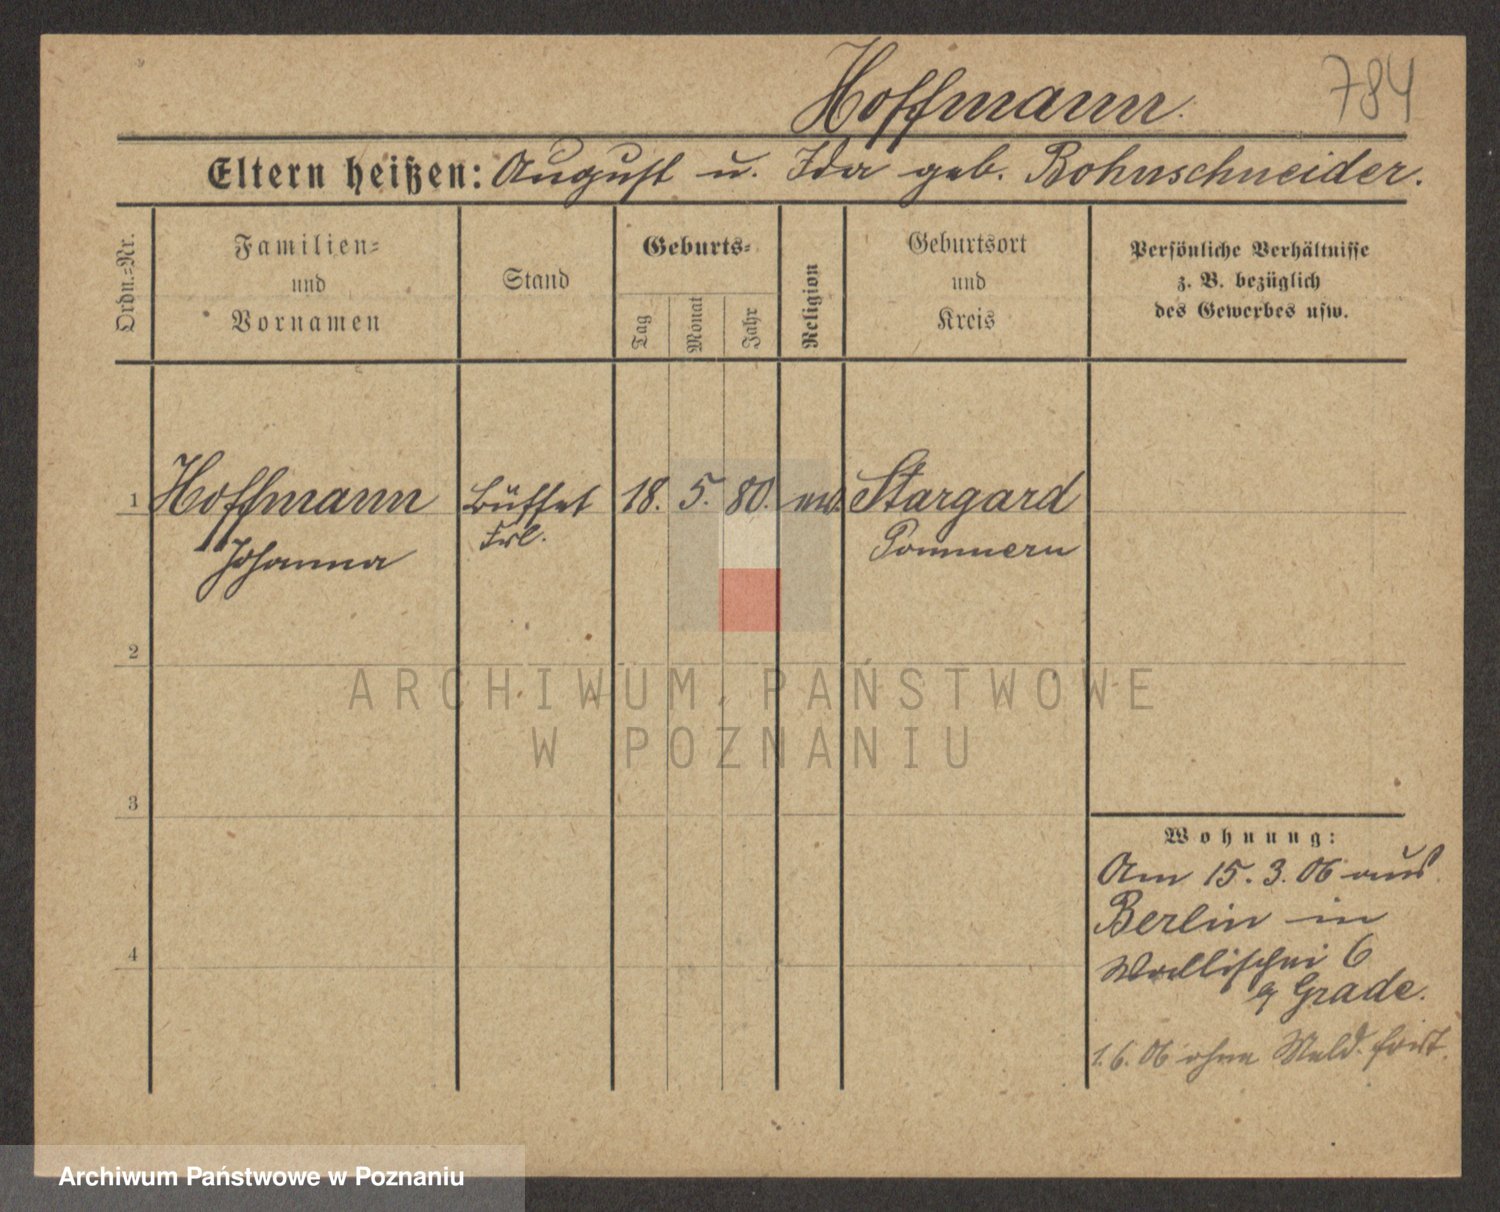 Hoffmann. 784
Eltern heißen: August u. Ida geb. Bohnschneider.
Ordn.-Nr.
Familien-
und
Vornamen
Stand
Geburts-
Tag
Monat
Jahr
Religion
Geburtsort
und
Kreis
Persönliche Verhältnisse
z. B. bezüglich
des Gewerbes usw.
1 Hoffmann Büffet 18. 5. 80. ev. Stargard
Johanna Frl. Pommern
2
ARCHIWUM PAŃSTWOWE
W POZNANIU
3
Wohnung:
Am 15. 3. 06 aus
Berlin in
4
Wallischei 6
Grade.
1. 6. 06 ohne Meld. fort.
Archiwum Państwowe w Poznaniu